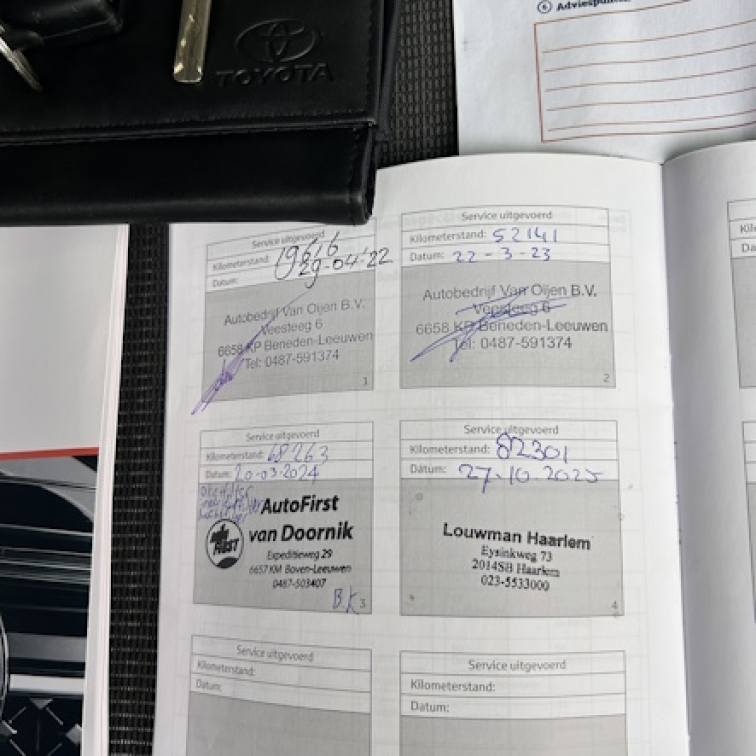 TOYOTA
6 Adviespunten
Service uitgevoerd
Kilometerstand: 19616
Datum: 29-04-'22
Autobedrijf Van Oijen B.V.
Veesteeg 6
6658 KP Beneden-Leeuwen
Tel: 0487-591374
1
Service uitgevoerd
Kilometerstand: 52141
Datum: 22-3-23
Autobedrijf Van Oijen B.V.
Veesteeg 6
6658 KP Beneden-Leeuwen
Tel: 0487-591374
2
Service uitgevoerd
Kilometerstand: 68263
Datum: 20-03-2024
AutoFirst
van Doornik
Expeditieweg 29
6657 KM Boven-Leeuwen
0487-503407
B.K 3
Service uitgevoerd
Kilometerstand: 82301
Datum: 27-10-2025
Louwman Haarlem
Eysinkweg 73
2014SB Haarlem
023-5533000
4
Service uitgevoerd
Kilometerstand:
Datum:
Service uitgevoerd
Kilometerstand:
Datum: